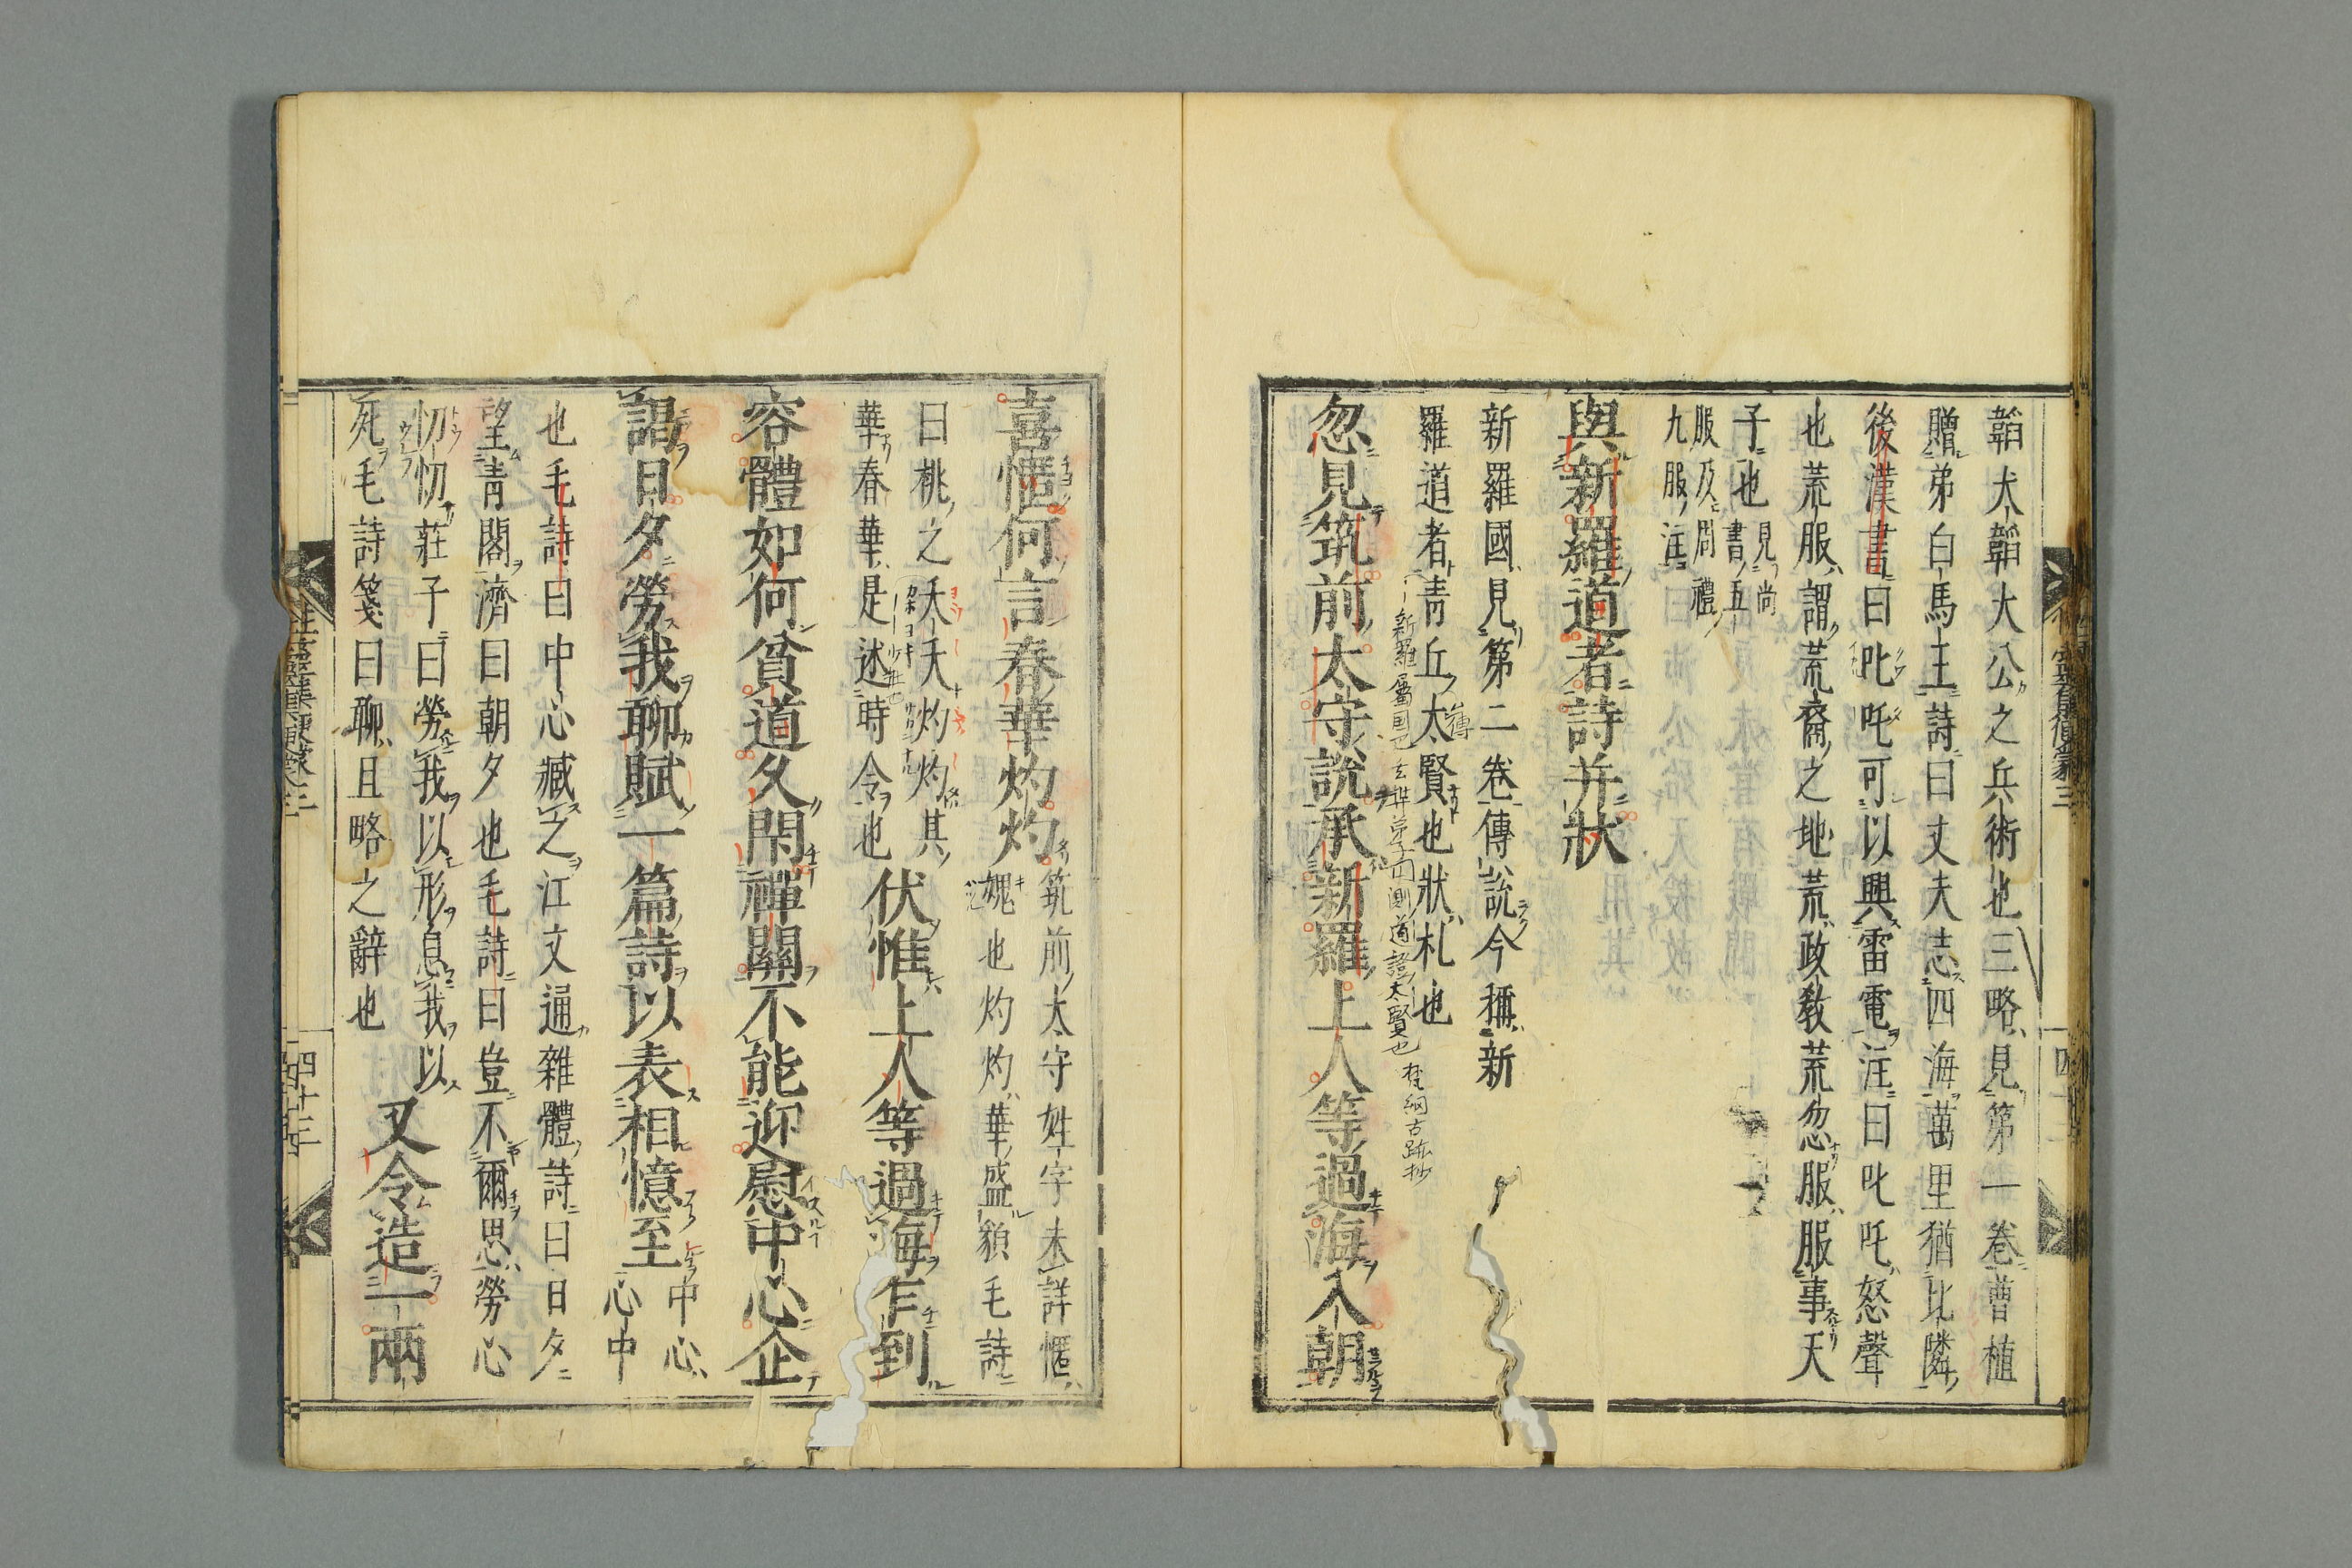 韜犬韜大公之兵術也三略見第一卷曹植
贈弟白馬王詩曰丈夫志四海萬里猶比隣
後漢書曰叱吒可以興雷電注曰叱吒怒聲
也荒服謂荒裔之地荒政敎荒忽服服事天
子也
見尚書五
服及周禮
九服注
與新羅道者詩并狀
新羅國見第二卷傳說今稱新
羅道者靑丘太賢也狀札也
忽見筑前太守說承新羅上人等過海入朝
喜慍何言春華灼灼
筑前太守姓字未詳慍
媿也灼灼華盛貌毛詩
曰桃之夭夭灼灼其
華春華是述時令也
伏惟上人等過海乍到
容體如何貧道久閑禪關不能迎慰中心企
謁日夕勞我聊賦一篇詩以表相憶至
中心
心中
也毛詩曰中心臧之江文通雜體詩曰日夕
望靑閣濟曰朝夕也毛詩曰豈不爾思勞心
忉忉莊子曰勞我以形息我以
死毛詩箋曰聊且略之辭也
又令造一兩
四十三